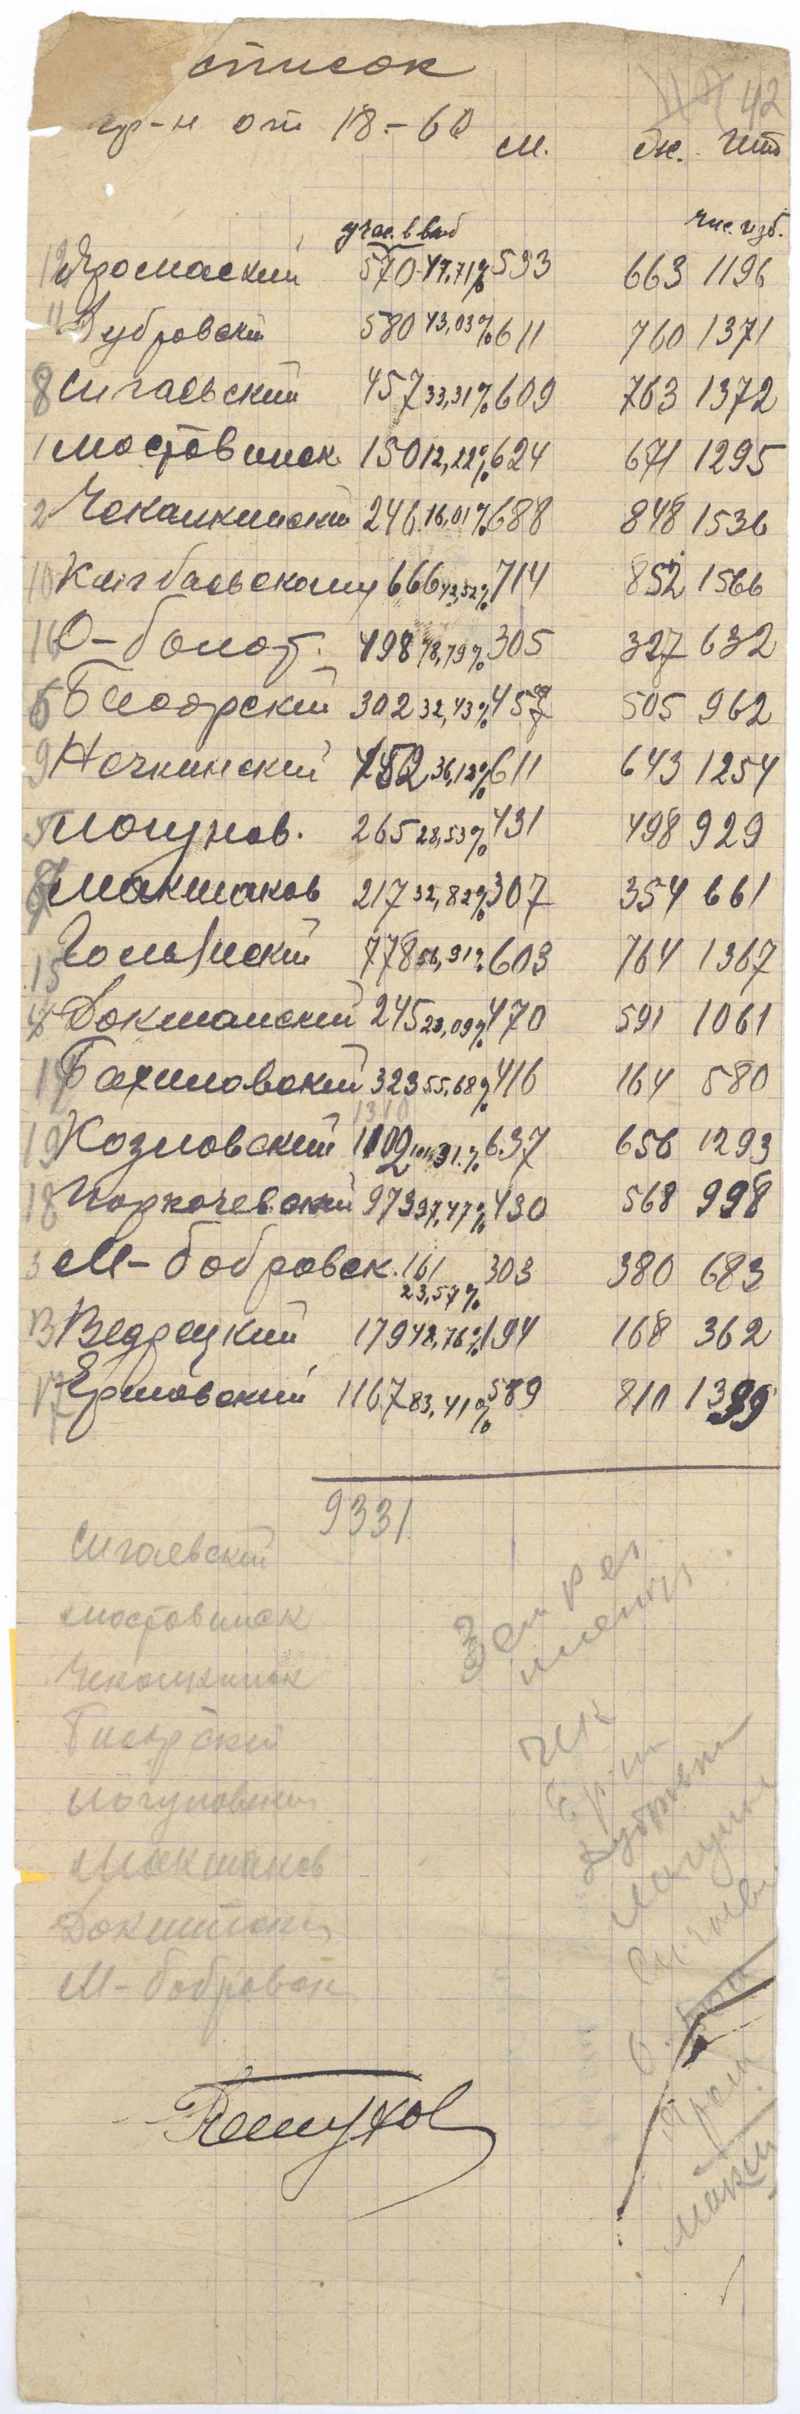 список
42
гр-н от 18-60
м. ж. Ито
учас. в выб чис. изб.
12 Яромаский 570 47,71% 533 663 1196
11 Дубровский 580 43,03% 611 760 1371
8 Сигаевский 457 33,31% 609 763 1372
1 Мостовинск 150 12,22% 624 671 1295
2 Чекалкинский 246 16,01% 688 848 1536
10 Кигбаевскому 666 43,52% 714 852 1566
16 О-болот. 498 78,79% 305 327 632
6 Бисярский 302 32,43% 457 505 962
9 Нечкинский 452 36,12% 611 643 1254
5 Логунов. 265 28,53% 431 498 929
Макшаков 217 32,82% 307 354 661
15 Гольянский 778 56,91% 603 764 1367
4 Докшанский 245 23,09% 470 591 1061
Бахиловский 323 55,68% 416 164 580
1310
19 Козловский 637 656 1293
18 Поркачевский 973 97,47% 430 568 998
3 М-бобровск. 161 303 380 683
23,57%
13 Ведрецкий 179 48,76% 194 168 362
17 Ершовский 1167 83,41% 589 810 1399
9331
Сигаевский
Мостовинск
Чекалкинск
Бисярский
Логуновский
Макшаков
Докшанский
М-бобровск
Чек
Ерш
Дубровск
Логунов
Сигаев
Яром
Макш
Петухов